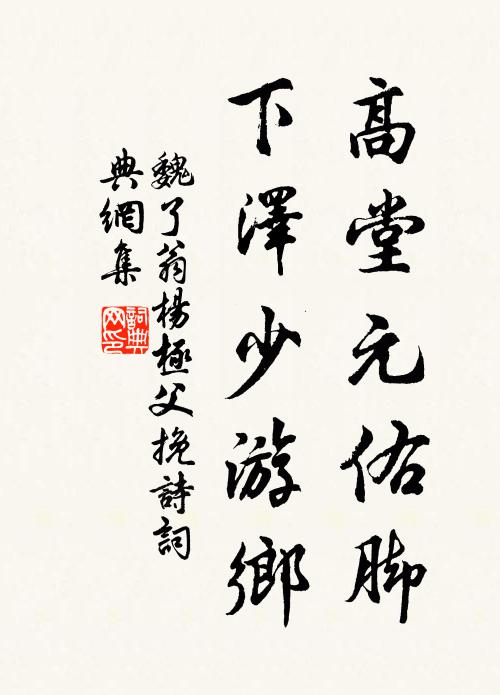 高堂元佑脚
下澤少游鄉
魏了翁楊極父挽詩詞
典網集
詞典网印